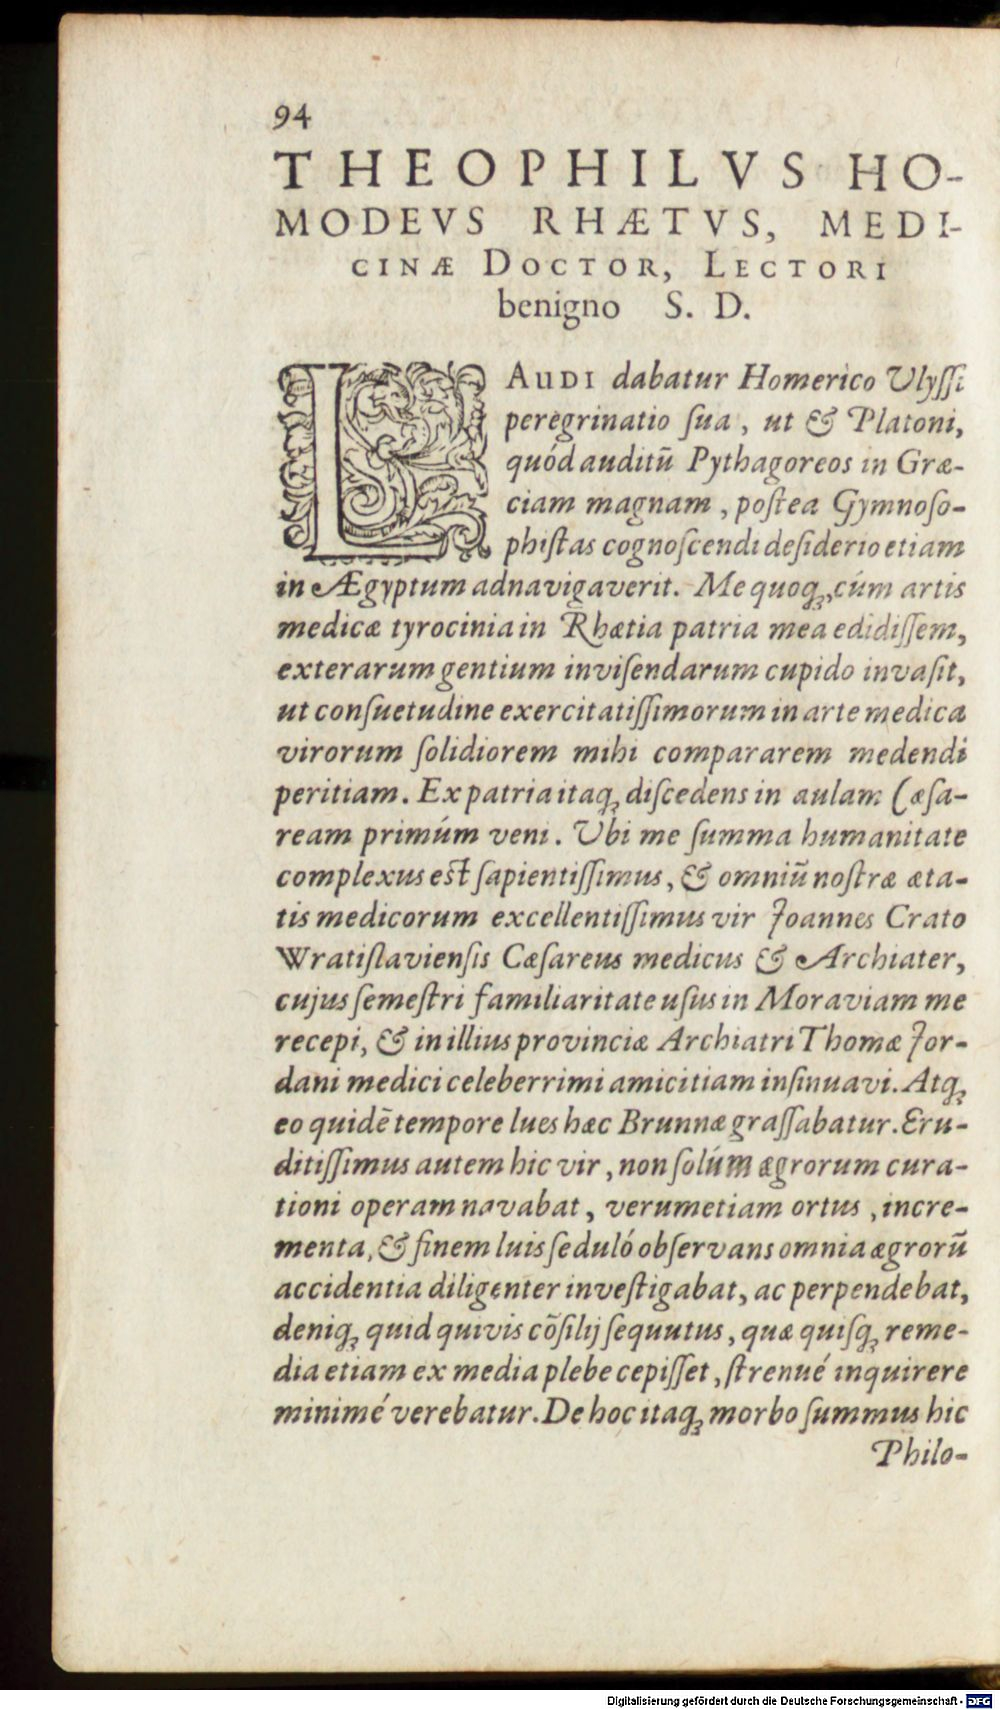 94
THEOPHILVS HO-
MODEVS RHÆTVS, MEDI-
CINÆ DOCTOR, LECTORI
benigno S. D.
LAUDI dabatur Homerico Ulyſſi
peregrinatio ſua, ut & Platoni,
quód auditū Pythagoreos in Græ-
ciam magnam, poſtea Gymnoſo-
phiſtas cognoſcendi deſiderio etiam
in Ægyptum adnavigaverit. Me quoq;, cúm artis
medicæ tyrocinia in Rhætia patria mea edidiſſem,
exterarum gentium inviſendarum cupido invaſit,
ut conſuetudine exercitatiſſimorum in arte medica
virorum ſolidiorem mihi compararem medendi
peritiam. Ex patria itaq; diſcedens in aulam Cæſa-
ream primúm veni. Ubi me ſumma humanitate
complexus eſt ſapientiſſimus, & omniū noſtræ æta-
tis medicorum excellentiſſimus vir Joannes Crato
Wratiſlavienſis Cæſareus medicus & Archiater,
cujus ſemeſtri familiaritate uſus in Moraviam me
recepi, & in illius provinciæ Archiatri Thomæ Jor-
dani medici celeberrimi amicitiam inſinuavi. Atq;
eo quidē tempore lues hæc Brunnæ graſſabatur. Eru-
ditiſſimus autem hic vir, non ſolúm ægrorum cura-
tioni operam navabat, verumetiam ortus, incre-
menta, & finem luis ſeduló obſervans omnia ægrorū
accidentia diligenter inveſtigabat, ac perpendebat,
deniq; quid quivis cōſilij ſequutus, quæ quiſq; reme-
dia etiam ex media plebe cepiſſet, ſtrenué inquirere
minimé verebatur. De hoc itaq; morbo ſummus hic
Philo-
Digitalisierung gefördert durch die Deutsche Forschungsgemeinschaft - DFG